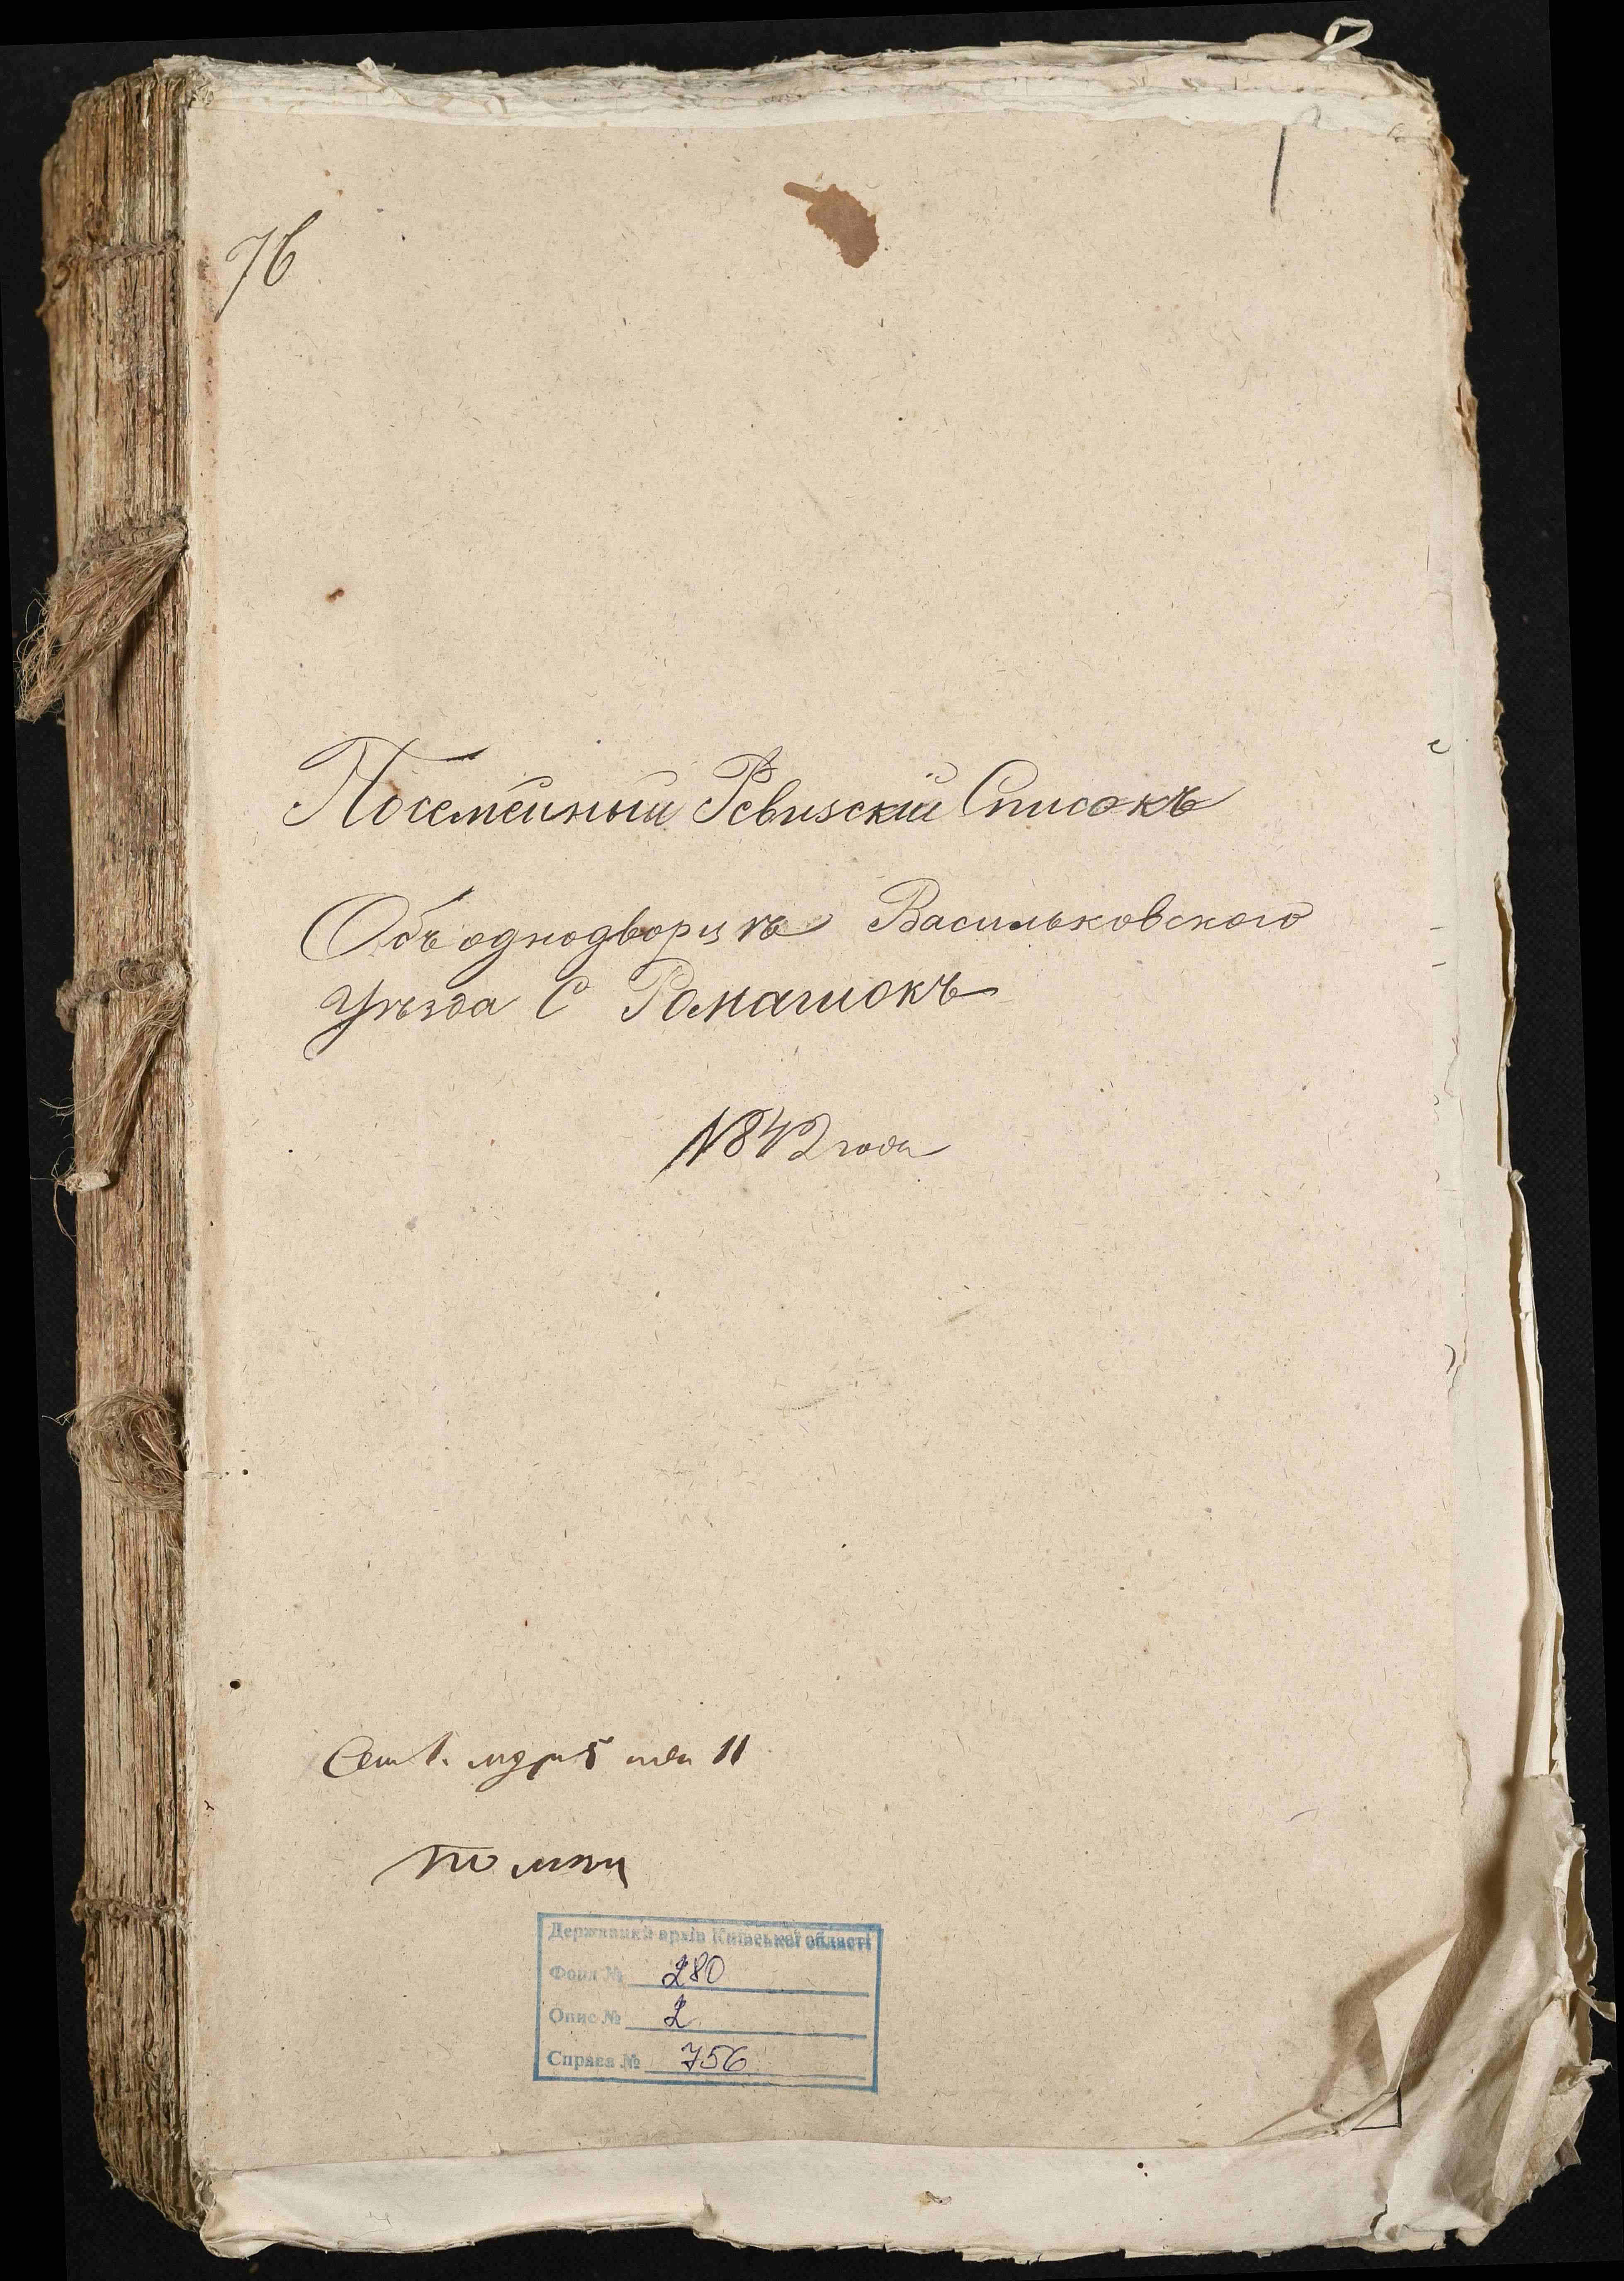 1
76
Посемейный Ревизскій Списокъ
Объ однодворцѣ Васильковского
Уѣзда С Ромашокъ
1842 года
11
Державний архів Київської області
Фонд № 280
Опис № 2
Справа № 756